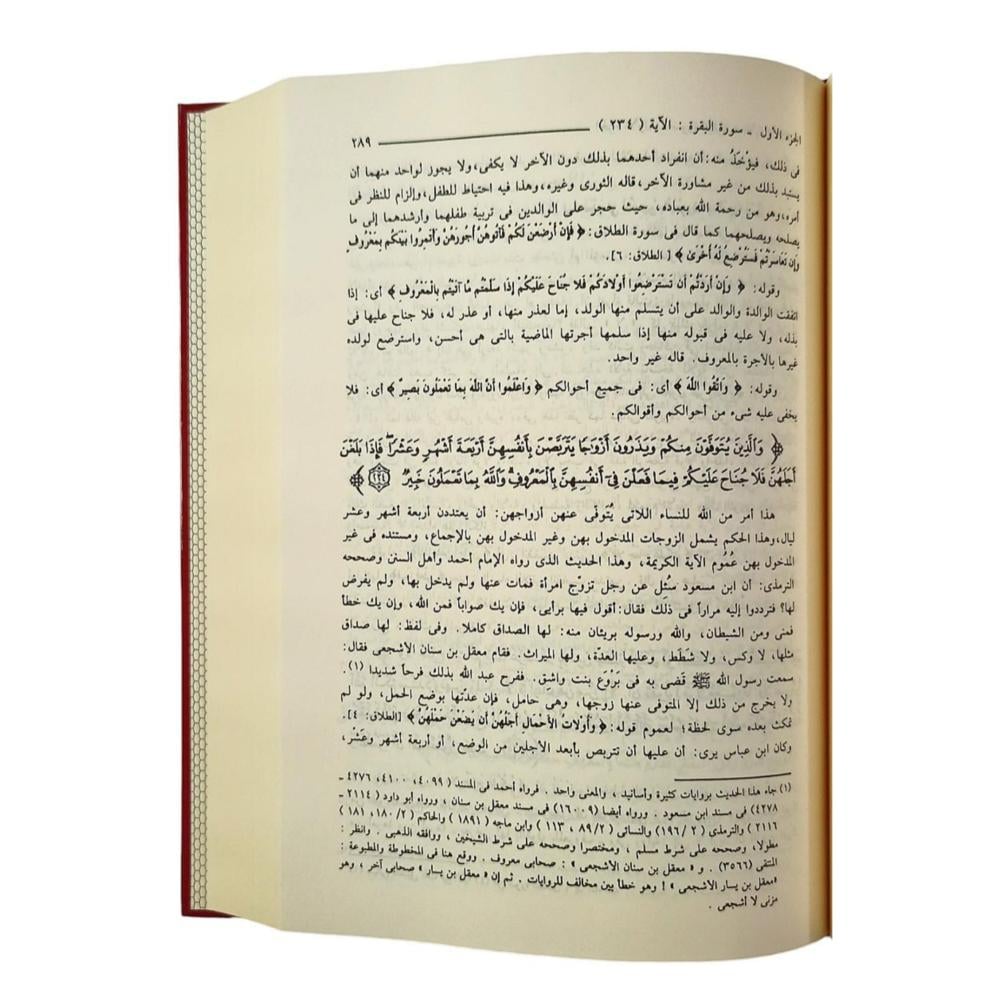 الجزء الأول - سورة البقرة : الآية ( ٢٣٤ ) ٢٨٩
فى ذلك، فيؤْخَذُ منه: أن انفراد أحدهما بذلك دون الآخر لا يكفى، ولا يجوز لواحد منهما أن
يستبد بذلك من غير مشاورة الآخر، قاله الثورى وغيره، وهذا فيه احتياط للطفل، وإلزام للنظر فى
أمره، وهو من رحمة الله بعباده، حيث حجر على الوالدين فى تربية طفلهما وأرشدهما إلى ما
يصلحه ويصلحهما كما قال فى سورة الطلاق: ﴿ فَإِنْ أَرْضَعْنَ لَكُمْ فَآتُوهُنَّ أُجُورَهُنَّ وَأْتَمِرُوا بَيْنَكُم بِمَعْرُوفٍ
وَإِن تَعَاسَرْتُمْ فَسَتُرْضِعُ لَهُ أُخْرَىٰ ﴾ [ الطلاق: ٦].
وقوله: ﴿ وَإِنْ أَرَدتُّمْ أَن تَسْتَرْضِعُوا أَوْلادَكُمْ فَلا جُنَاحَ عَلَيْكُمْ إِذَا سَلَّمْتُم مَّا آتَيْتُم بِالْمَعْرُوفِ ﴾ أى: إذا
اتفقت الوالدة والوالد على أن يتسلم منها الولد، إما لعذر منها، أو عذر له، فلا جناح عليها فى
بذله، ولا عليه فى قبوله منها إذا سلمها أجرتها الماضية بالتى هى أحسن، واسترضع لولده
غيرها بالأجرة بالمعروف. قاله غير واحد.
وقوله: ﴿ وَاتَّقُوا اللَّهَ ﴾ أى: فى جميع أحوالكم ﴿ وَاعْلَمُوا أَنَّ اللَّهَ بِمَا تَعْمَلُونَ بَصِيرٌ ﴾ أى: فلا
يخفى عليه شىء من أحوالكم وأقوالكم.
﴿ وَالَّذِينَ يُتَوَفَّوْنَ مِنكُمْ وَيَذَرُونَ أَزْوَاجًا يَتَرَبَّصْنَ بِأَنفُسِهِنَّ أَرْبَعَةَ أَشْهُرٍ وَعَشْرًا ۖ فَإِذَا بَلَغْنَ
أَجَلَهُنَّ فَلَا جُنَاحَ عَلَيْكُمْ فِيمَا فَعَلْنَ فِىٓ أَنفُسِهِنَّ بِالْمَعْرُوفِ ۗ وَاللَّهُ بِمَا تَعْمَلُونَ خَبِيرٌ ٢٣٤ ﴾
هذا أمر من الله للنساء اللاتى يُتَوفّى عنهن أزواجهن: أن يعتددن أربعة أشهر وعشر
ليال، وهذا الحكم يشمل الزوجات المدخول بهن وغير المدخول بهن بالإجماع، ومستنده فى غير
المدخول بهن عُمُوم الآية الكريمة، وهذا الحديث الذى رواه الإمام أحمد وأهل السنن وصححه
الترمذى: أن ابن مسعود سُئِل عن رجل تزوّج امرأة فمات عنها ولم يدخل بها، ولم يفرض
لها؟ فترددوا إليه مراراً فى ذلك فقال: أقول فيها برأيى، فإن يك صواباً فمن الله، وإن يك خطأ
فمنى ومن الشيطان، والله ورسوله بريئان منه: لها الصداق كاملا. وفى لفظ: لها صداق
مثلها، لا وكس، ولا شَطَط، وعليها العدّة، ولها الميراث. فقام معقل بن سنان الأشجعى فقال:
سمعت رسول الله ﷺ قَضى به فى بَرْوَع بنت واشِق. ففرح عبد الله بذلك فرحاً شديدا (١).
ولا يخرج من ذلك إلا المتوفى عنها زوجها، وهى حامل، فإن عدّتها بوضع الحمل، ولو لم
تمكث بعده سوى لحظة؛ لعموم قوله: ﴿ وَأُوْلاتُ الأَحْمَالِ أَجَلُهُنَّ أَن يَضَعْنَ حَمْلَهُنَّ ﴾ [الطلاق: ٤].
وكان ابن عباس يرى: أن عليها أن تتربص بأبعد الأجلين من الوضع، أو أربعة أشهر وعَشْر،
(١) جاء هذا الحديث بروايات كثيرة وأسانيد ، والمعنى واحد . فرواه أحمد فى المسند ( ٤٠٩٩، ٤١٠٠، ٤٢٧٦ ـ
٤٢٧٨) فى مسند ابن مسعود . ورواه أيضا (١٦٠٠٩) فى مسند معقل بن سنان ، ورواه أبو داود ( ٢١١٤ ـ
٢١١٦ ) والترمذى ( ٢ /١٩٦) والنسائى ( ٨٩/٢ ، ١١٣ ) وابن ماجه ( ١٨٩١ ) والحاكم ( ١٨٠/٢، ١٨١ )
مطولا، وصححه على شرط مسلم ، ومختصرا وصححه على شرط الشيخين ، ووافقه الذهبى . وانظر :
المنتقى (٣٥٦٦) . و « معقل بن سنان الأشجعى » : صحابى معروف . ووقع هنا فى المخطوطة والمطبوعة :
«معقل بن يسار الأشجعى » ! وهو خطأ بين مخالف للروايات . ثم إن « معقل بن يسار » صحابى آخر ، وهو
مزنى لا أشجعى .